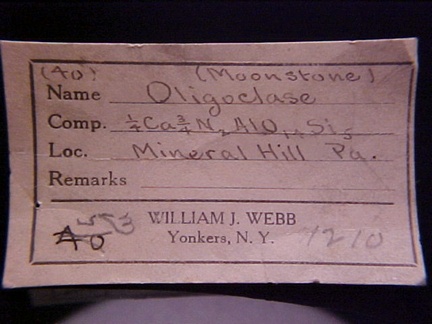 (A0) (Moonstone)
Name Oligoclase
Comp. ¼Ca¾N₂AlO₁₄Si₅
Loc. Mineral Hill Pa.
Remarks
553 WILLIAM J. WEBB
A0 Yonkers, N. Y. 1210